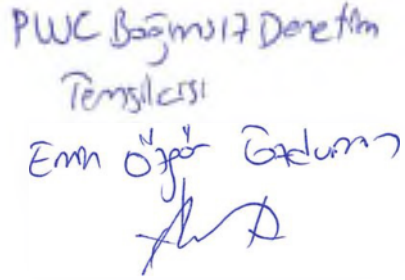 PWC Bağımsız Denetim
Temsilcisi
Emin Özgür